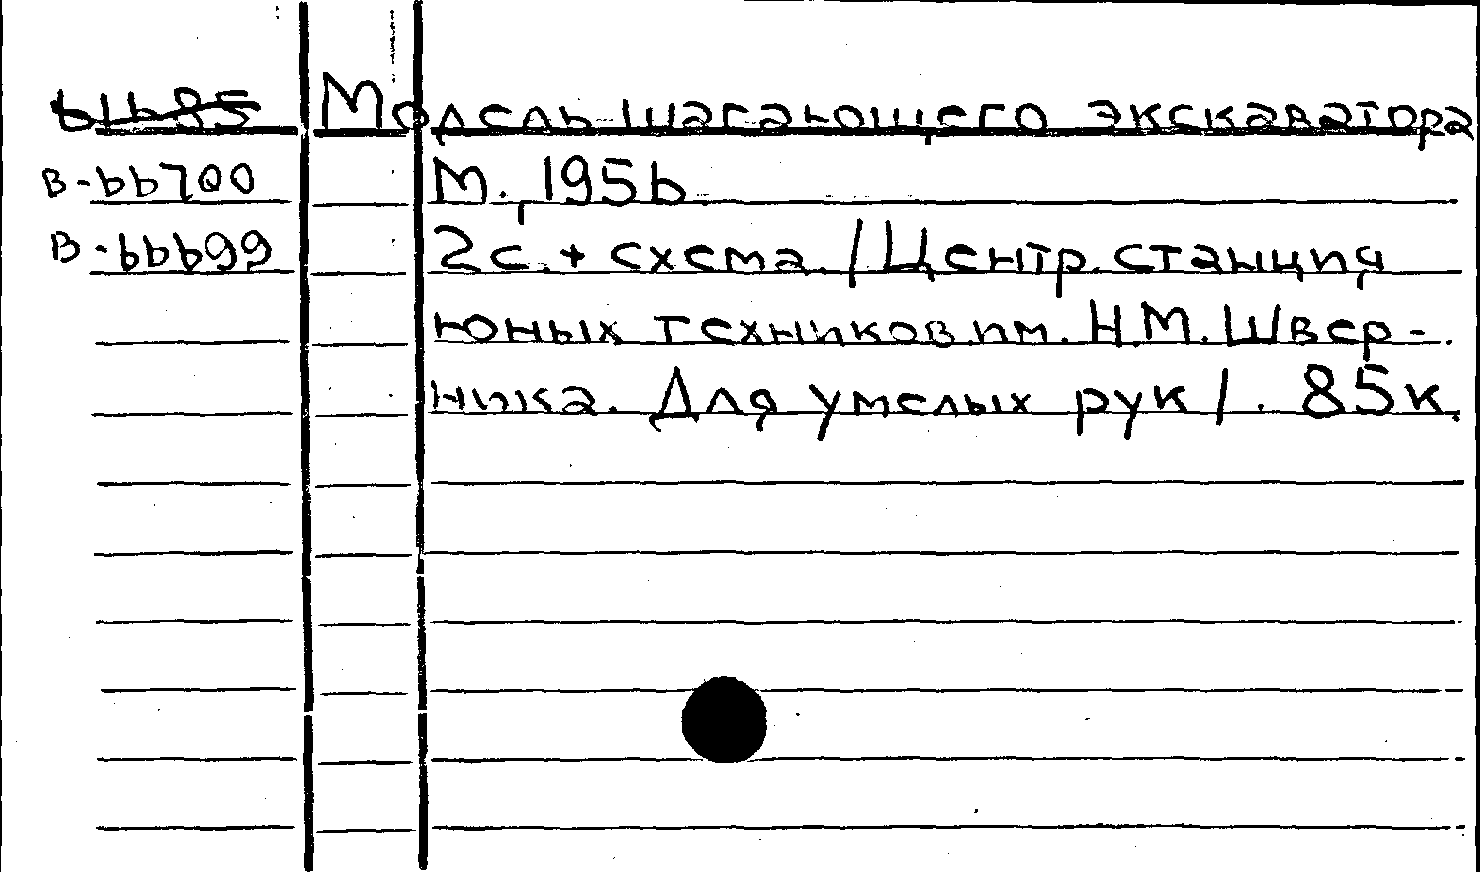 61685 Модель шагающего экскаватора
В-66700 М., 1956.
В-66699 2с. + схема. /Центр. станция
юных техников им. Н.М. Швер-
ника. Для умелых рук/. 85к.